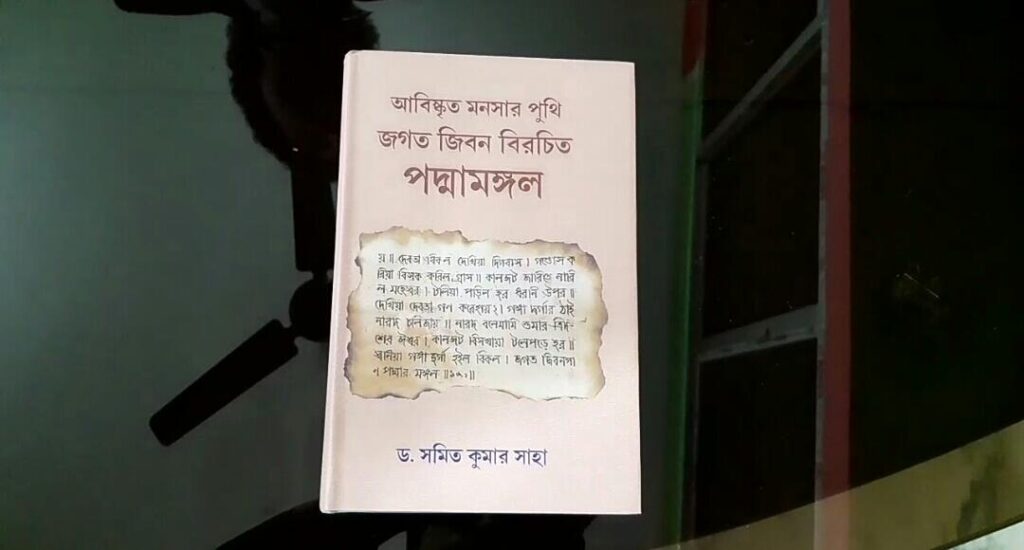 আবিষ্কৃত মনসার পুথি
জগত জিবন বিরচিত
পদ্মামঙ্গল
য় ॥ দেবতা দেখিয়া দিগবাস ।
রিয়া বিসক করিল গ্রাস ॥ কালকূট জারিতে নারি
ল মহেশ্বর । টলিয়া পড়িল হর ধরনি উপর ॥
দেখিয়া দেবতা গন করে । গঙ্গা দুর্গার ঠাই
নারদ চলি জায় ॥ নারদ বলে মামি শুনার বিদ
শের ঈশ্বর । কালকূট বিসখায়া টলে পড়ে হর ॥
সুনিয়া গঙ্গা দুর্গা হইল বিকল । জগত জিবন গা
ন পদ্মার মঙ্গল ॥
ড. সমিত কুমার সাহা